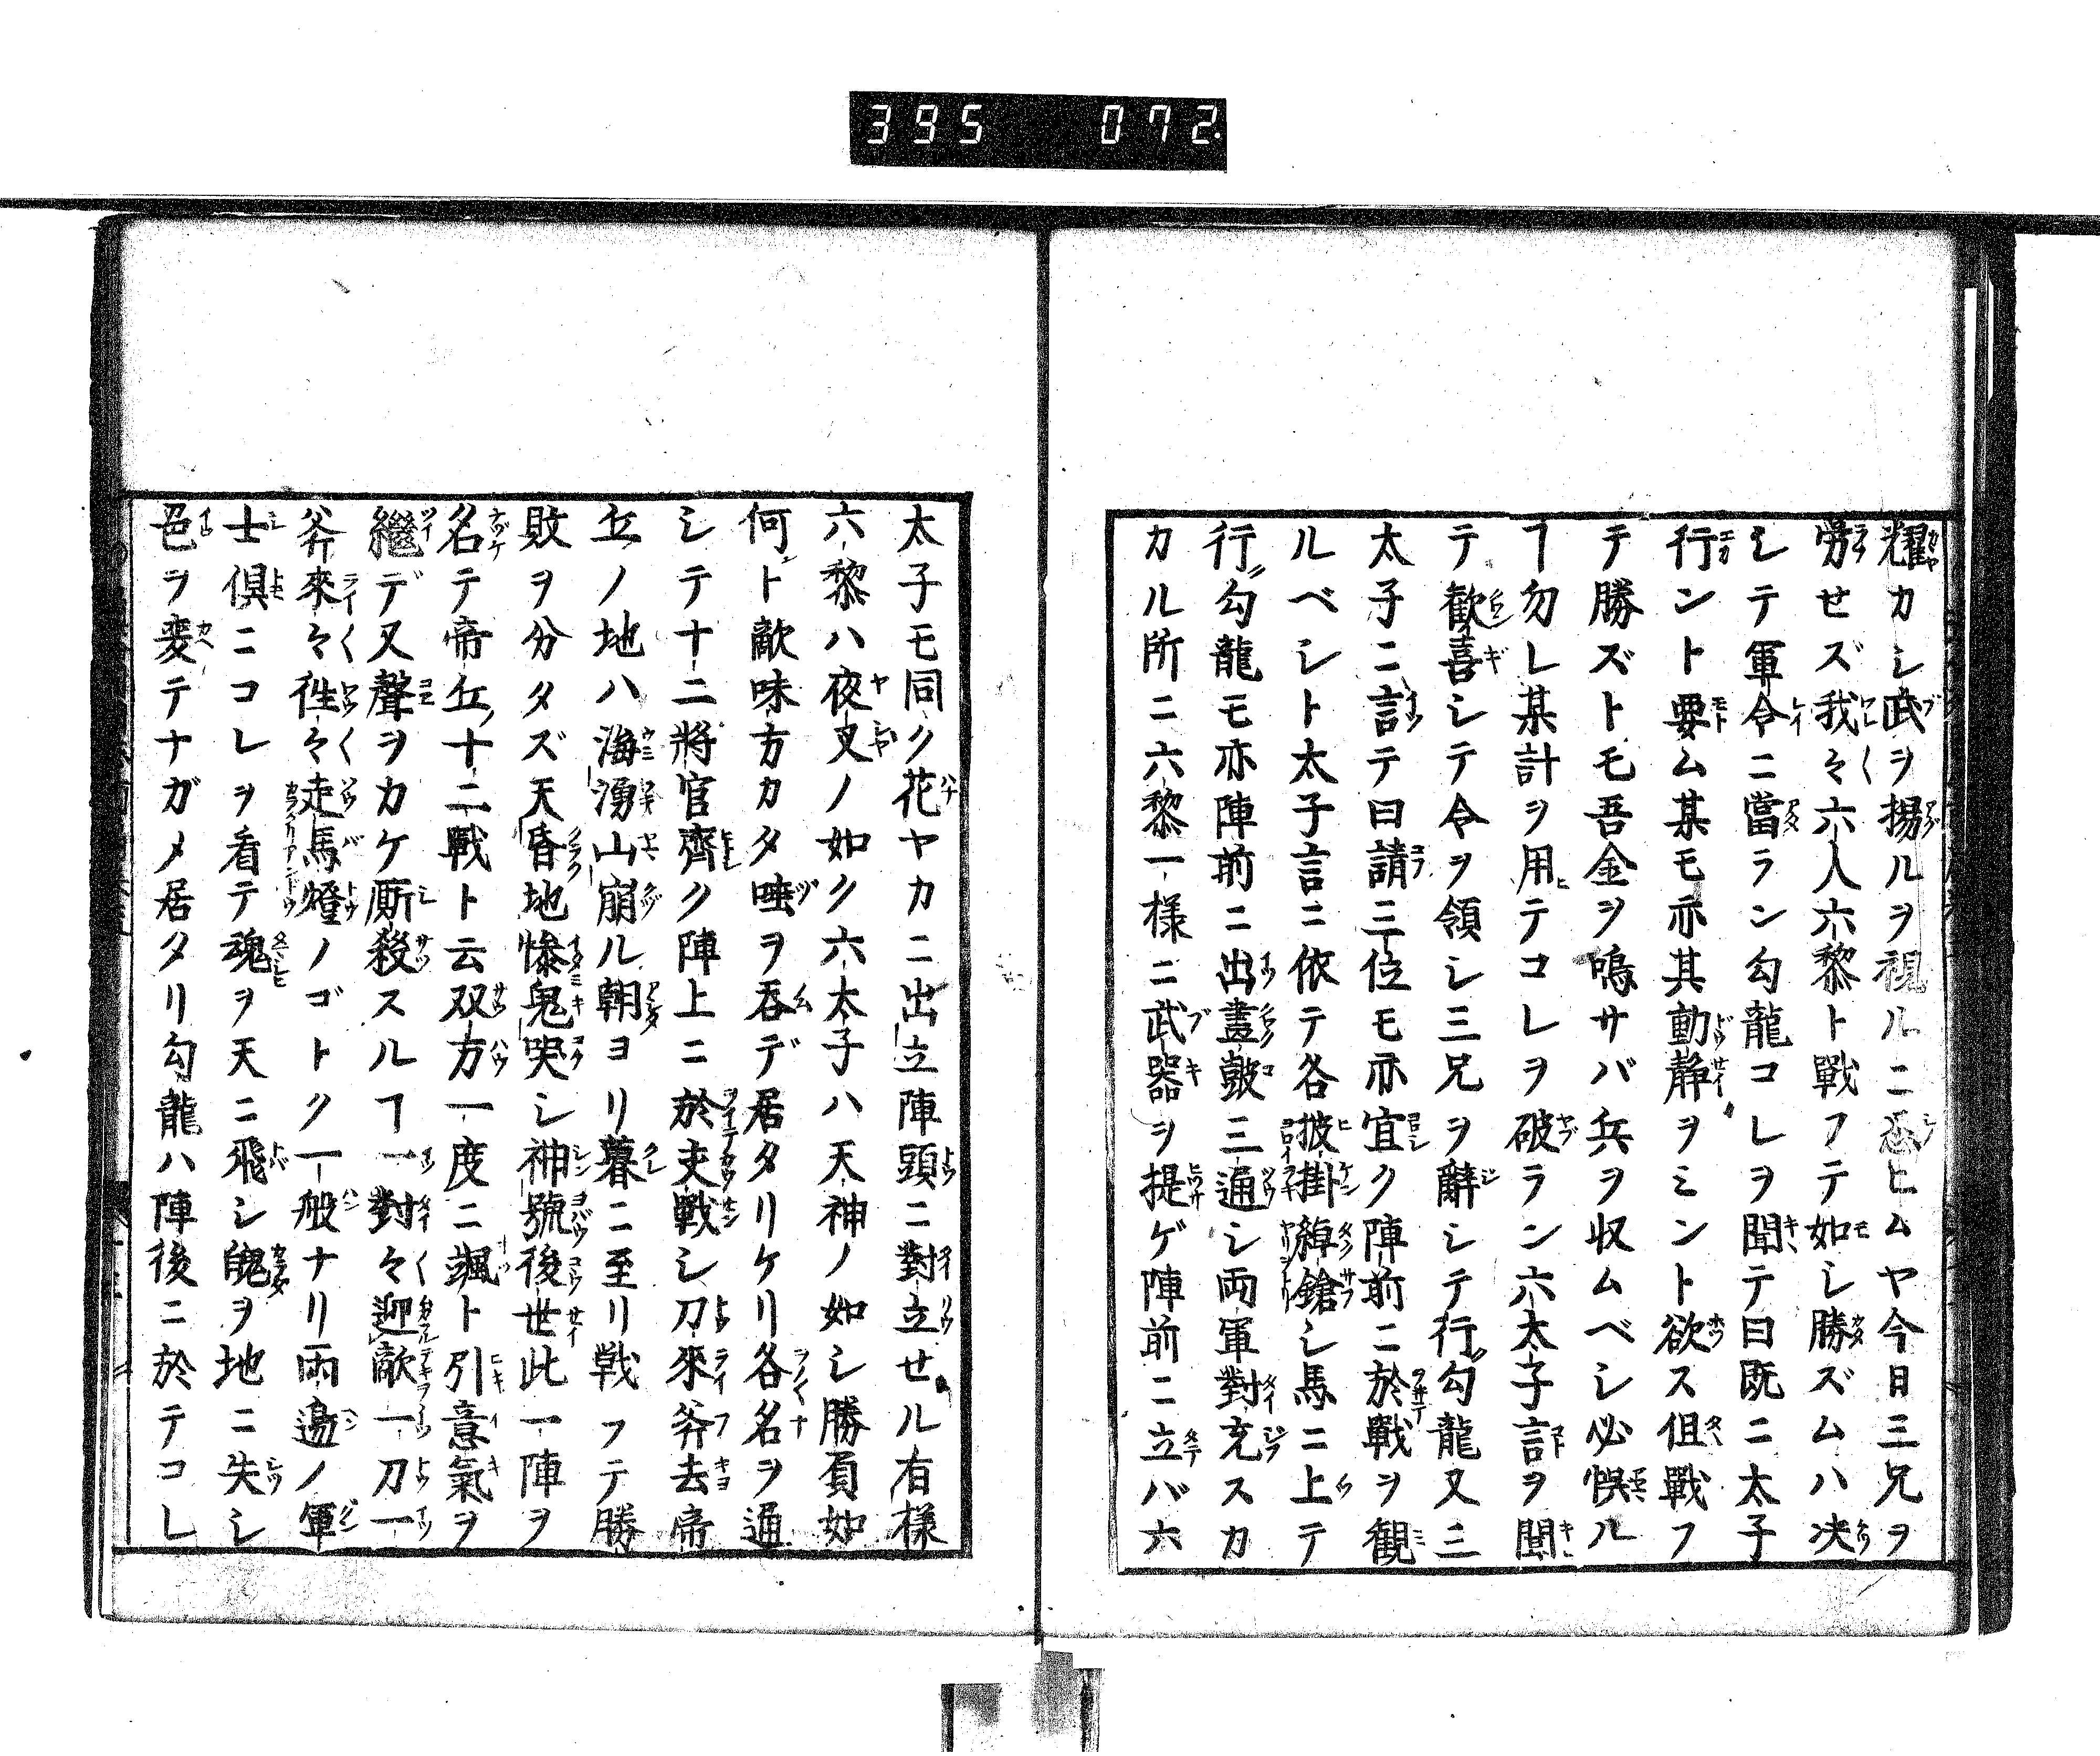 395 072
耀カシ武ヲ揚ルヲ視ルニ忍ヒムヤ今日三兄ヲ
勞セズ我々六人六黎ト戰フテ如シ勝ズムハ决
シテ軍令ニ當ラン勾龍コレヲ聞テ曰既ニ太子
行ント要ム某モ亦其動靜ヲミント欲ス但戰フ
テ勝ズトモ吾金ヲ鳴サバ兵ヲ収ムベシ必悞ル
ヿ勿レ某計ヲ用テコレヲ破ラン六太子言ヲ聞
テ歡喜シテ令ヲ領シ三兄ヲ辭シテ行勾龍又三
太子ニ言テ曰請三位モ亦宜ク陣前ニ於戰ヲ觀
ルベシト太子言ニ依テ各披掛綽鎗シ馬ニ上テ
行勾龍モ亦陣前ニ出畫皷三通シ両軍對充スカ
カル所ニ六黎一様ニ武器ヲ提ゲ陣前ニ立バ六
太子モ同ク花ヤカニ出立陣頭ニ對立せル有様
六黎ハ夜叉ノ如ク六太子ハ天神ノ如シ勝負如
何ト敵味方カタ唾ヲ呑デ居タリケリ各名ヲ通
シテ十二將官齊ク陣上ニ於交戰シ刀來斧去帝
丘ノ地ハ海湧山崩ル朝ヨリ暮ニ至リ戦フテ勝
敗ヲ分タズ天昏地慘鬼哭シ神號後世此一陣ヲ
名テ帝丘十二戰ト云双方一度ニ颯ト引意氣ヲ
繼デ又聲ヲカケ厮殺スルヿ一對々迎敵一刀一
斧來々徃々走馬燈ノゴトク一般ナリ両邉ノ軍
士倶ニコレヲ看テ魂ヲ天ニ飛シ魄ヲ地ニ失シ
色ヲ変テナガメ居タリ勾龍ハ陣後ニ於テコレ